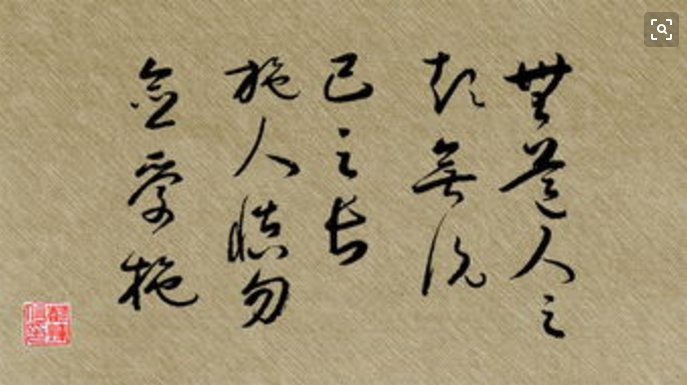 無道人之
短無說
己之長
施人慎勿
念受施